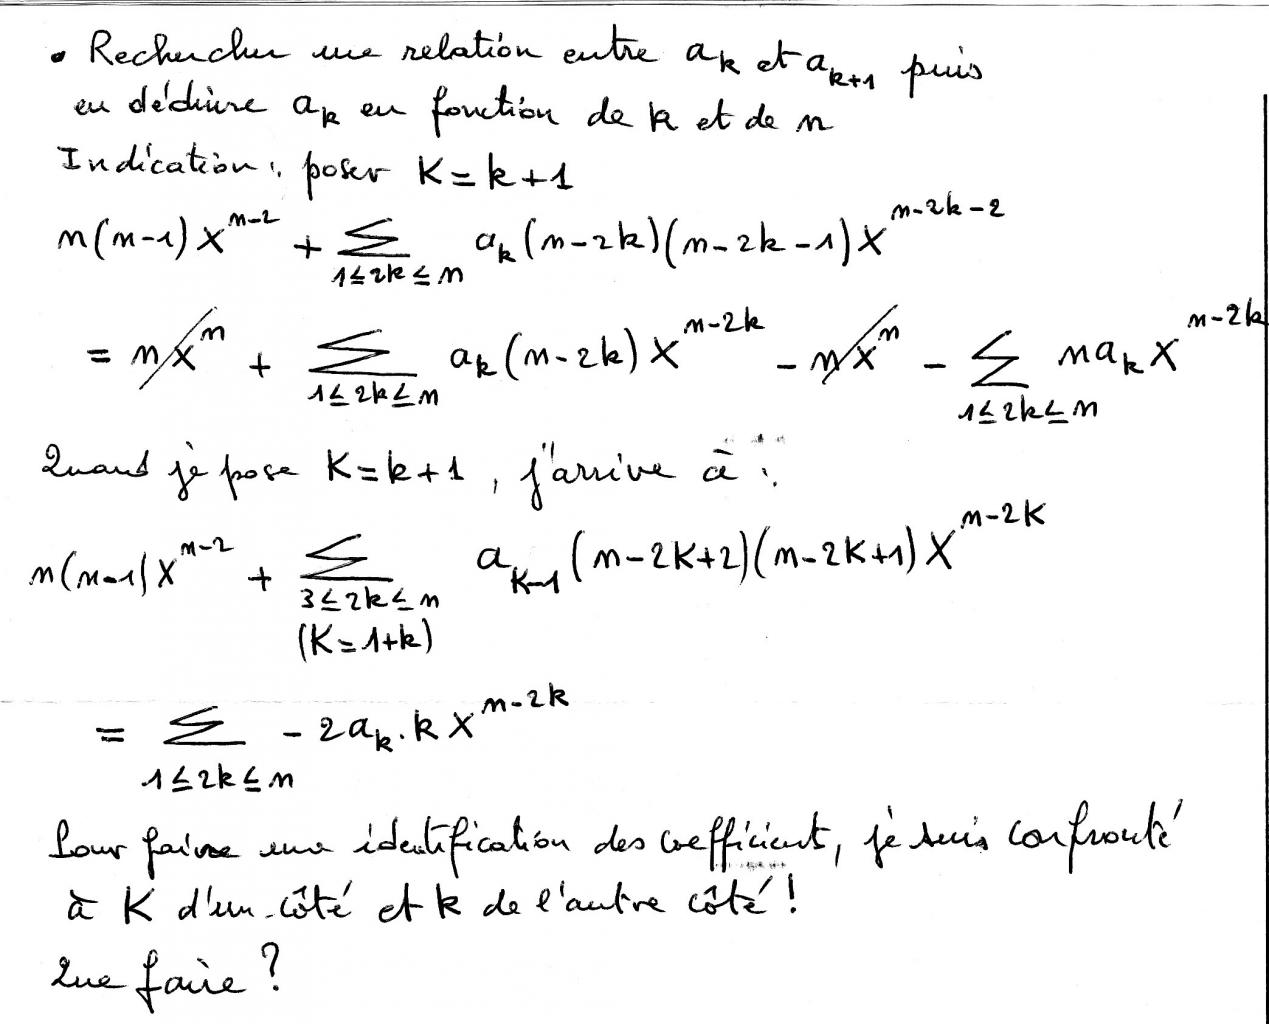 • Rechercher une relation entre a_k et a_{k+1} puis
en déduire a_k en fonction de k et de n
Indication : poser K = k + 1
n(n-1)X^{n-2} + Σ_{1≤2k≤n} a_k (n-2k)(n-2k-1)X^{n-2k-2}
= nX^n + Σ_{1≤2k≤n} a_k (n-2k) X^{n-2k} - nX^n - Σ_{1≤2k≤n} n a_k X^{n-2k}
Quand je pose K = k + 1, j'arrive à :
n(n-1)X^{n-2} + Σ_{3≤2k≤n} a_{K-1} (n-2K+2)(n-2K+1)X^{n-2K}
(K = 1+k)
= Σ_{1≤2k≤n} - 2a_k . k X^{n-2k}
Pour faire une identification des coefficient, je suis confronté
à K d'un côté et k de l'autre côté !
Que faire ?